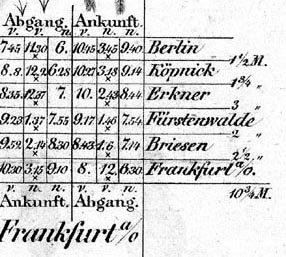 Abgang. Ankunft.
v. n. n. v. v. n.
7.45 11.30 6. 10.45 3.45 9.40 Berlin
1½ M.
8.8 12.2 6.28 10.27 3.18 9.14 Köpnick
1¾ "
8.35 12.37 7. 10. 2.43 8.44 Erkner
3 "
9.23 1.37 7.55 9.17 1.46 7.54 Fürstenwalde
2 "
9.52 2.14 8.30 8.43 1.6 7.14 Briesen
2½ "
10.30 3.15 9.10 8. 12. 6.30 Frankfurt a/O.
v. n. n. v. n. n.
Ankunft. Abgang. 10¾ M.
Frankfurt a/O